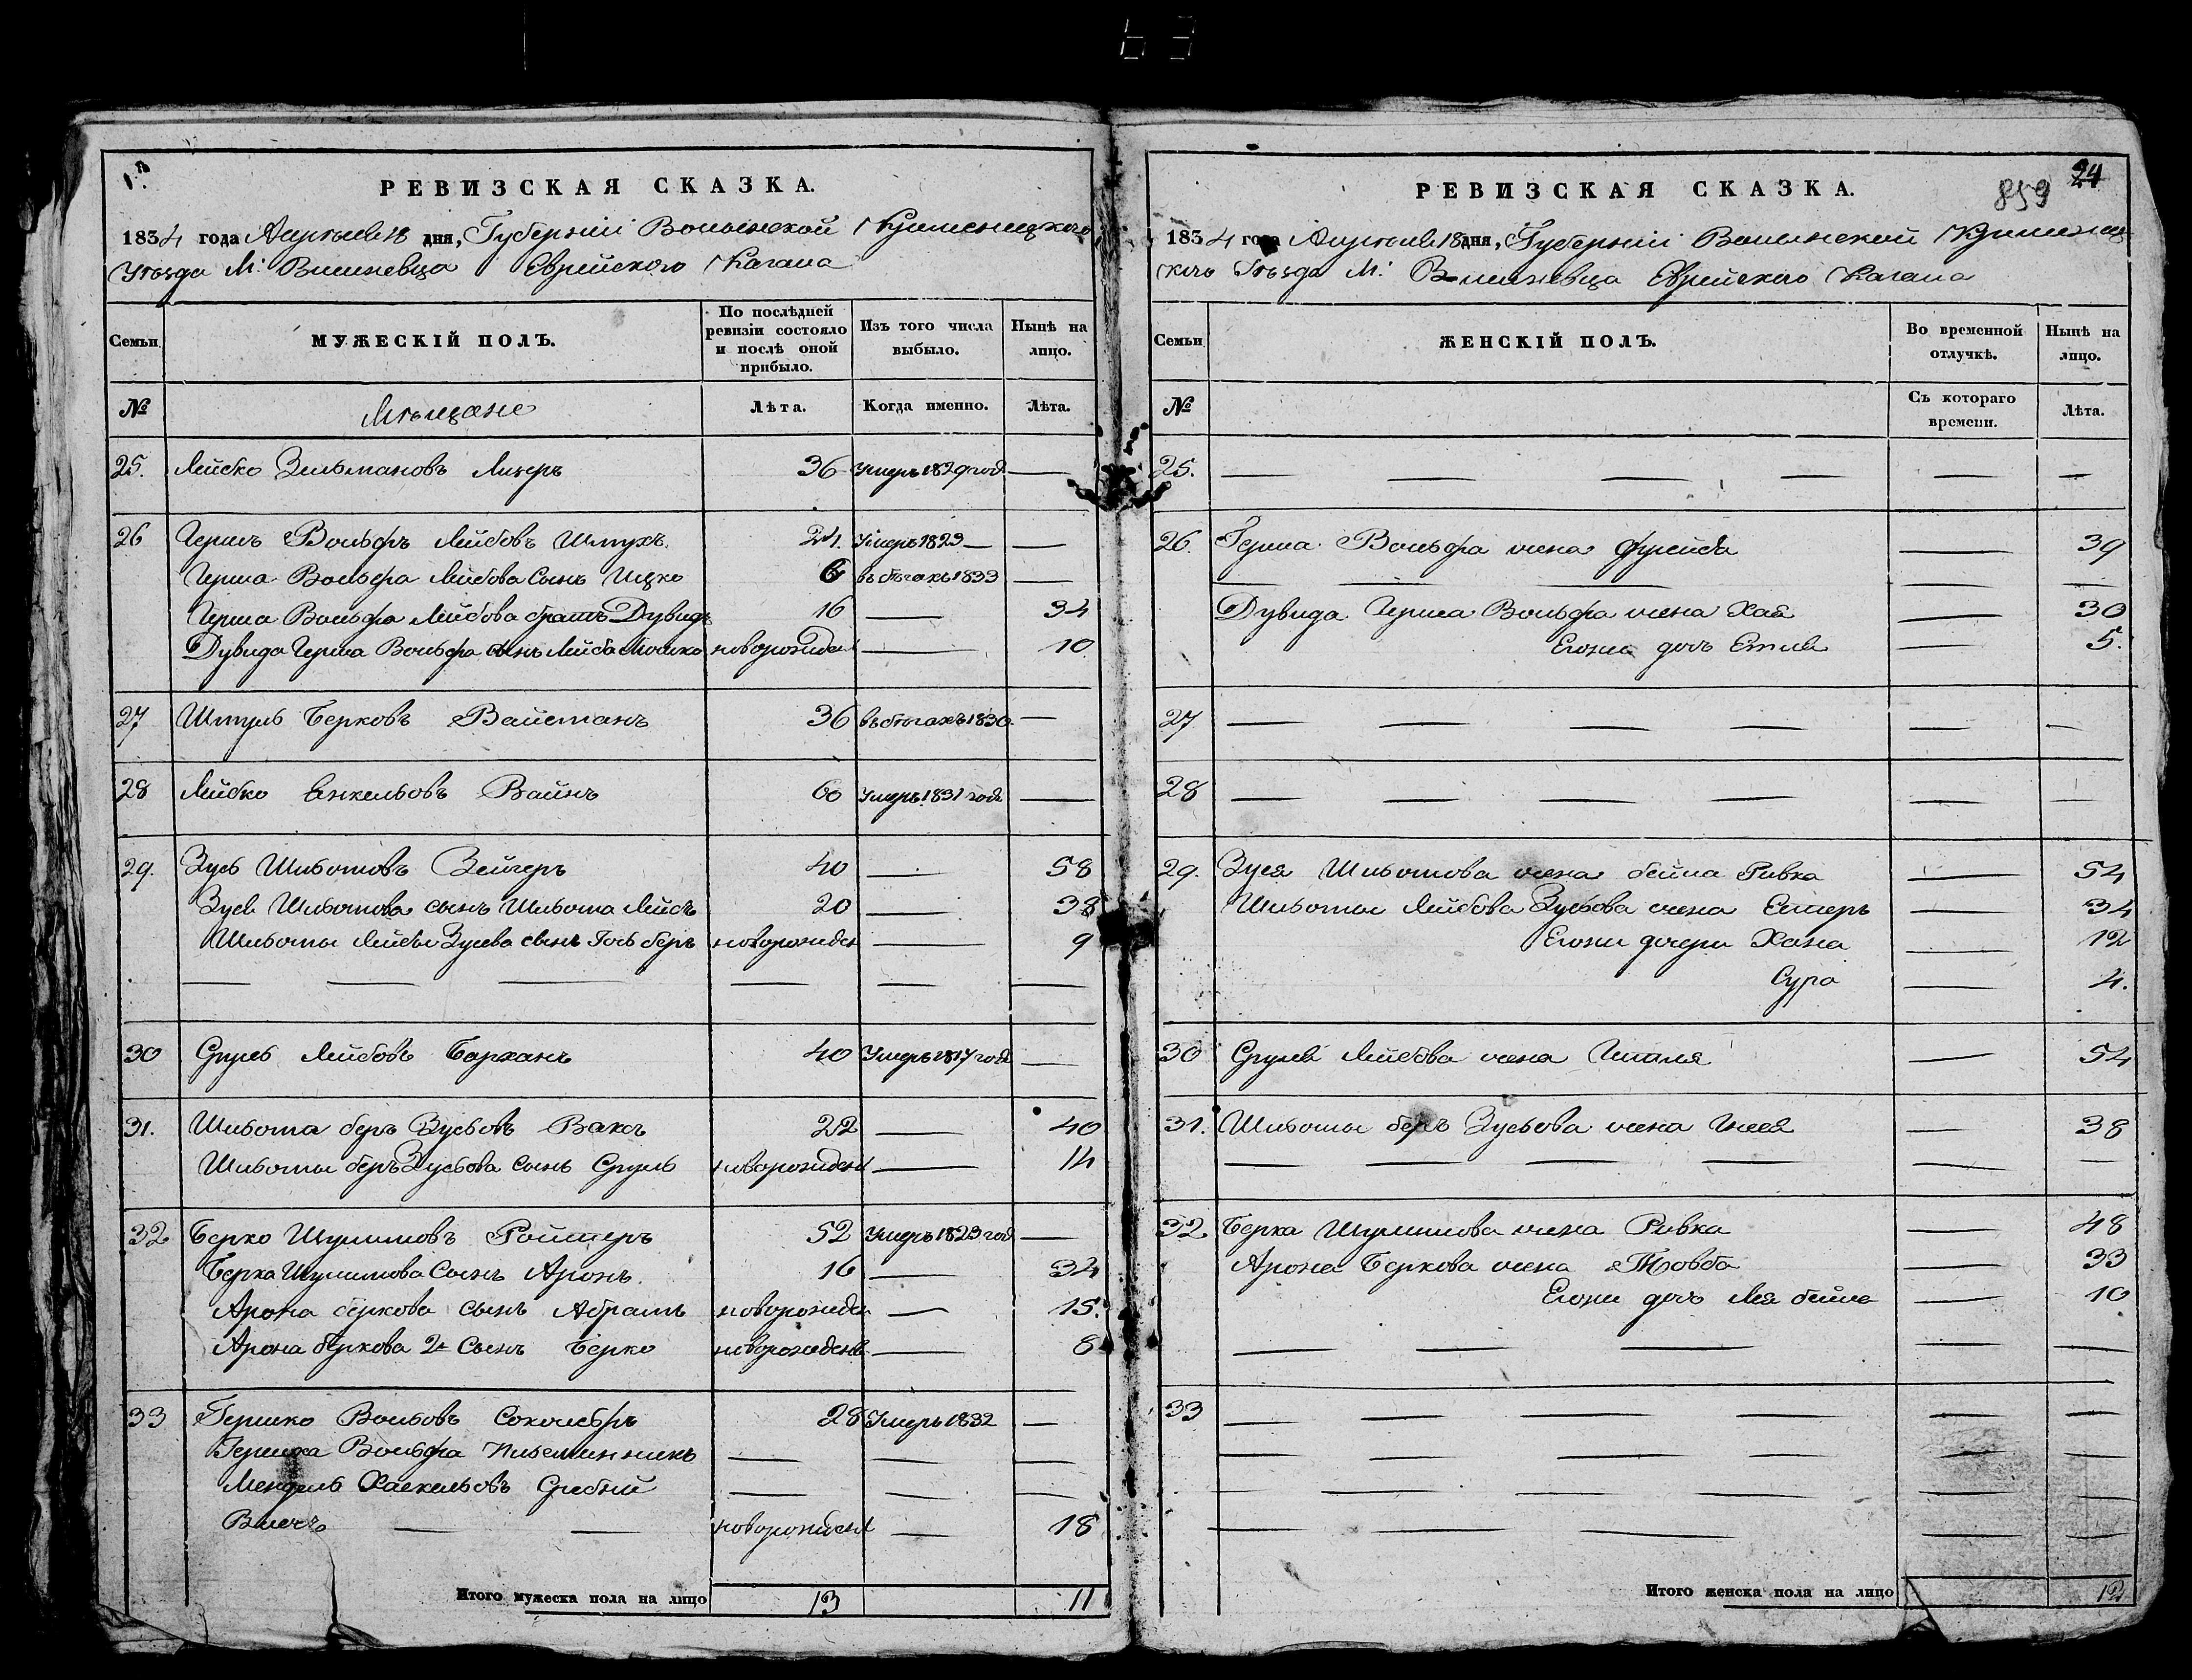 РЕВИЗСКАЯ СКАЗКА.
1834 года Апреля 18 дня, Губерніи Волынской Кременецкаго
Уѣзда М: Вишневца Еврейского Кагала
Семьи МУЖЕСКІЙ ПОЛЪ. По послѣдней ревизіи состояло и послѣ оной прибыло. Изъ того числа выбыло. Нынѣ на лицо.
№ Мѣщане Лѣта. Когда именно. Лѣта.
25. Лейбко Зельмановъ 36 Умеръ 1829 год —
26 Гершъ Вольфъ Лейбовъ Шмукъ 21. Умеръ 1823 — —
Герша Вольфа Лейбова Сынъ Ицко 6 въ бѣгахъ 1833 —
Герша Вольфа Лейбова братъ Дувидъ 16 — 34
Дувида Герша Вольфа сынъ Лейба Мошко новорожден — 10
27 Шмуль Берковъ Вайсманъ 36 въ бѣгахъ 1830 —
28 Лейбко Янкельовъ Вайнъ 60 Умеръ 1831 года —
29. Зусь Шльомовъ Зейгеръ 40 — 58
Зуся Шльомова сынъ Шльома Лейбъ 20 — 38
Шльомы Лейбы Зусева сынъ Гось беръ новорожден — 9
— — — — — —
30 Сруль Лейбовъ Барханъ 40 Умеръ 1817 года —
31. Шльома беръ Зусьовъ Ваксъ 22 — 40
Шльомы беръ Зусьова Сынъ Сруль новорожден — 14
32 Берко Шулимовъ Ройтеръ 52 Умеръ 1823 год —
Берка Шулимова Сынъ Аронъ. 16 — 34
Арона беркова сынъ Абрамъ новорожден — 15.
Арона беркова 2й Сынъ Берко новорожден — 8
33 Гершко Вольовъ 28 Умеръ 1832 —
Гершка Вольфа племянникъ — — —
Мендель Хаскельовъ — — —
— — новорожден — 18
Итого мужеска пола на лицо 13 11
24
859
РЕВИЗСКАЯ СКАЗКА.
1834 года Апреля 18 дня, Губерніи Волынской Кременец
каго Уѣзда М: Вишневца Еврейского Кагала
Семьи ЖЕНСКІЙ ПОЛЪ. Во временной отлучкѣ. Нынѣ на лицо.
№ Съ котораго времени. Лѣта.
25. — — — — — —
26. Герша Вольфа жена Фрейда — 39
— — — — —
Дувида Герша Вольфа жена Хая — 30
Егожъ дочь Етля — 5.
27 — — — — — —
28 — — — — — —
29. Зуся Шльомова жена бейла Ривка — 54
Шльомы Лейбова Зусьова жена Естеръ — 34
Егожъ дочери Хана — 12
Сура — 4.
30 Сруля Лейбова жена Гитля — 54
31. Шльомы беръ Зусьова жена — 38
— — — — — —
32 Берка Шулимова жена Ривка — 48
Арона Беркова жена Товба — 33
Егожъ дочь Лея бейла — 10
— — — — —
33 — — — — — —
— — — — — —
— — — — — —
— — — — —
Итого женска пола на лицо 12